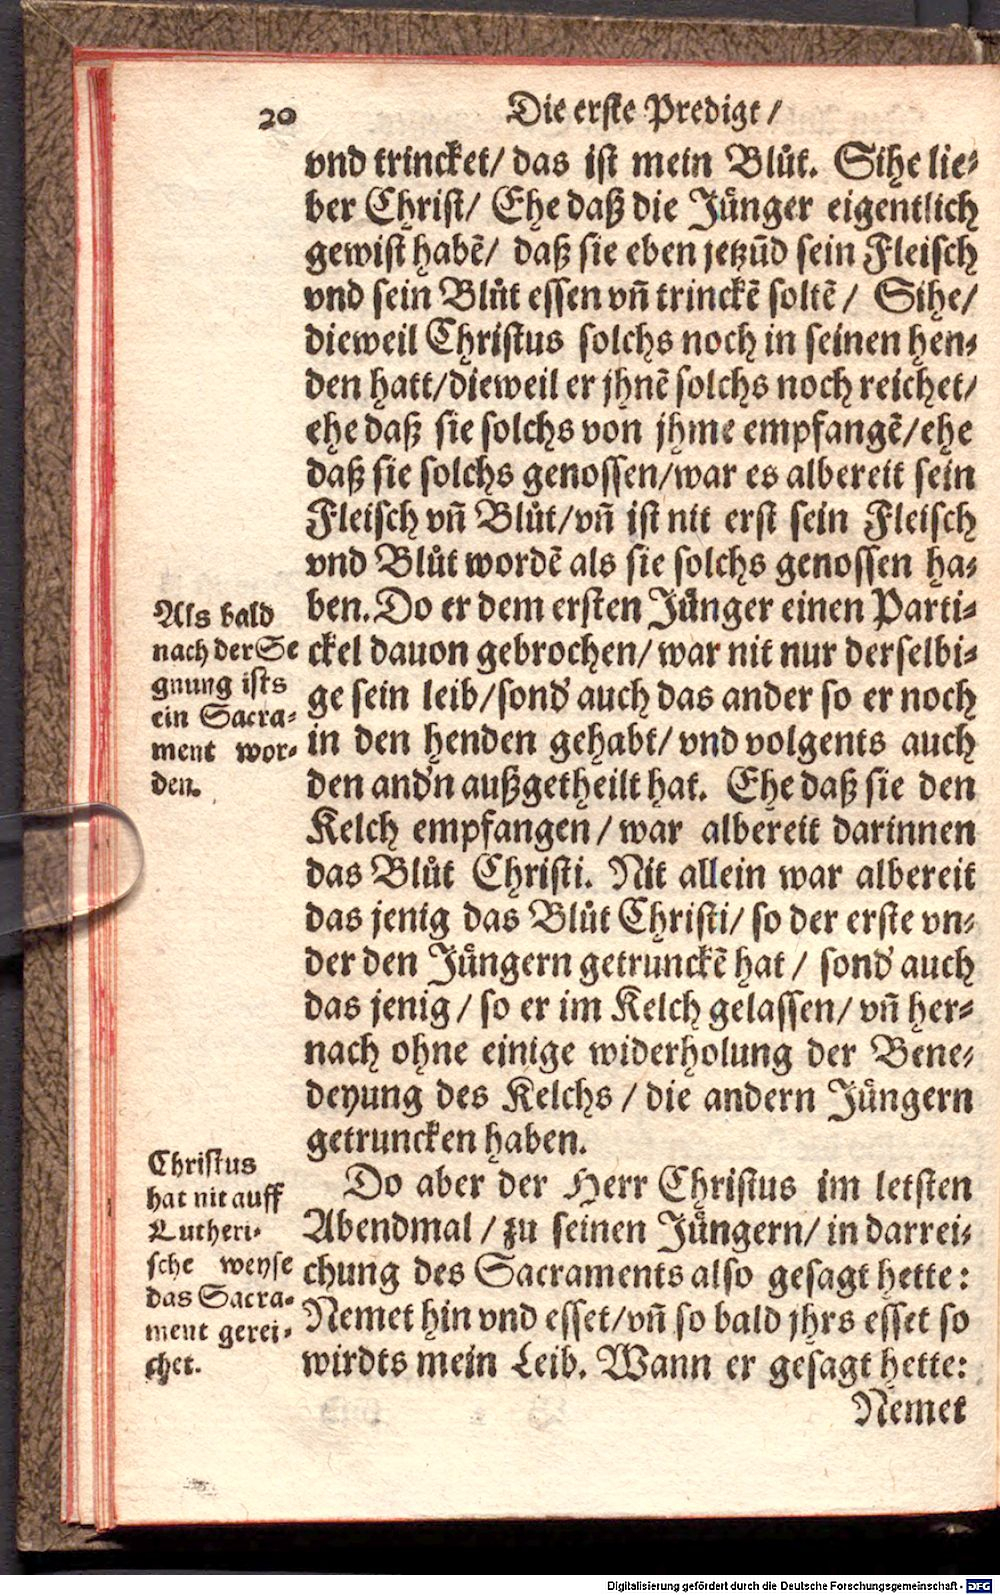 20
Die erste Predigt /
vnd trincket/ das ist mein Blůt. Sihe lie-
ber Christ/ Ehe daß die Jünger eigentlich
gewist habẽ/ daß sie eben jetzũd sein Fleisch
vnd sein Blůt essen vñ trinckẽ soltẽ / Sihe/
dieweil Christus solchs noch in seinen hen-
den hatt/dieweil er jhnẽ solchs noch reichet/
ehe daß sie solchs von jhme empfangẽ/ehe
daß sie solchs genossen/war es albereit sein
Fleisch vñ Blůt/vñ ist nit erst sein Fleisch
vnd Blůt wordẽ als sie solchs genossen ha-
ben. Do er dem ersten Jünger einen Parti-
ckel dauon gebrochen/ war nit nur derselbi-
ge sein leib/sond' auch das ander so er noch
in den henden gehabt/ vnd volgents auch
den and'n außgetheilt hat. Ehe daß sie den
Kelch empfangen / war albereit darinnen
das Blůt Christi. Nit allein war albereit
das jenig das Blůt Christi/ so der erste vn-
der den Jüngern getrunckẽ hat / sond' auch
das jenig / so er im Kelch gelassen/ vñ her-
nach ohne einige widerholung der Bene-
deyung des Kelchs / die andern Jüngern
getruncken haben.
Do aber der Herr Christus im letsten
Abendmal / zu seinen Jüngern/ in darrei-
chung des Sacraments also gesagt hette:
Nemet hin vnd esset/vñ so bald jhrs esset so
wirdts mein Leib. Wann er gesagt hette:
Nemet
Als bald
nach der Se
gnung ists
ein Sacra-
ment wor-
den.
Christus
hat nit auff
Lutheri-
sche weyse
das Sacra-
ment gerei-
chet.
Digitalisierung gefördert durch die Deutsche Forschungsgemeinschaft - DFG